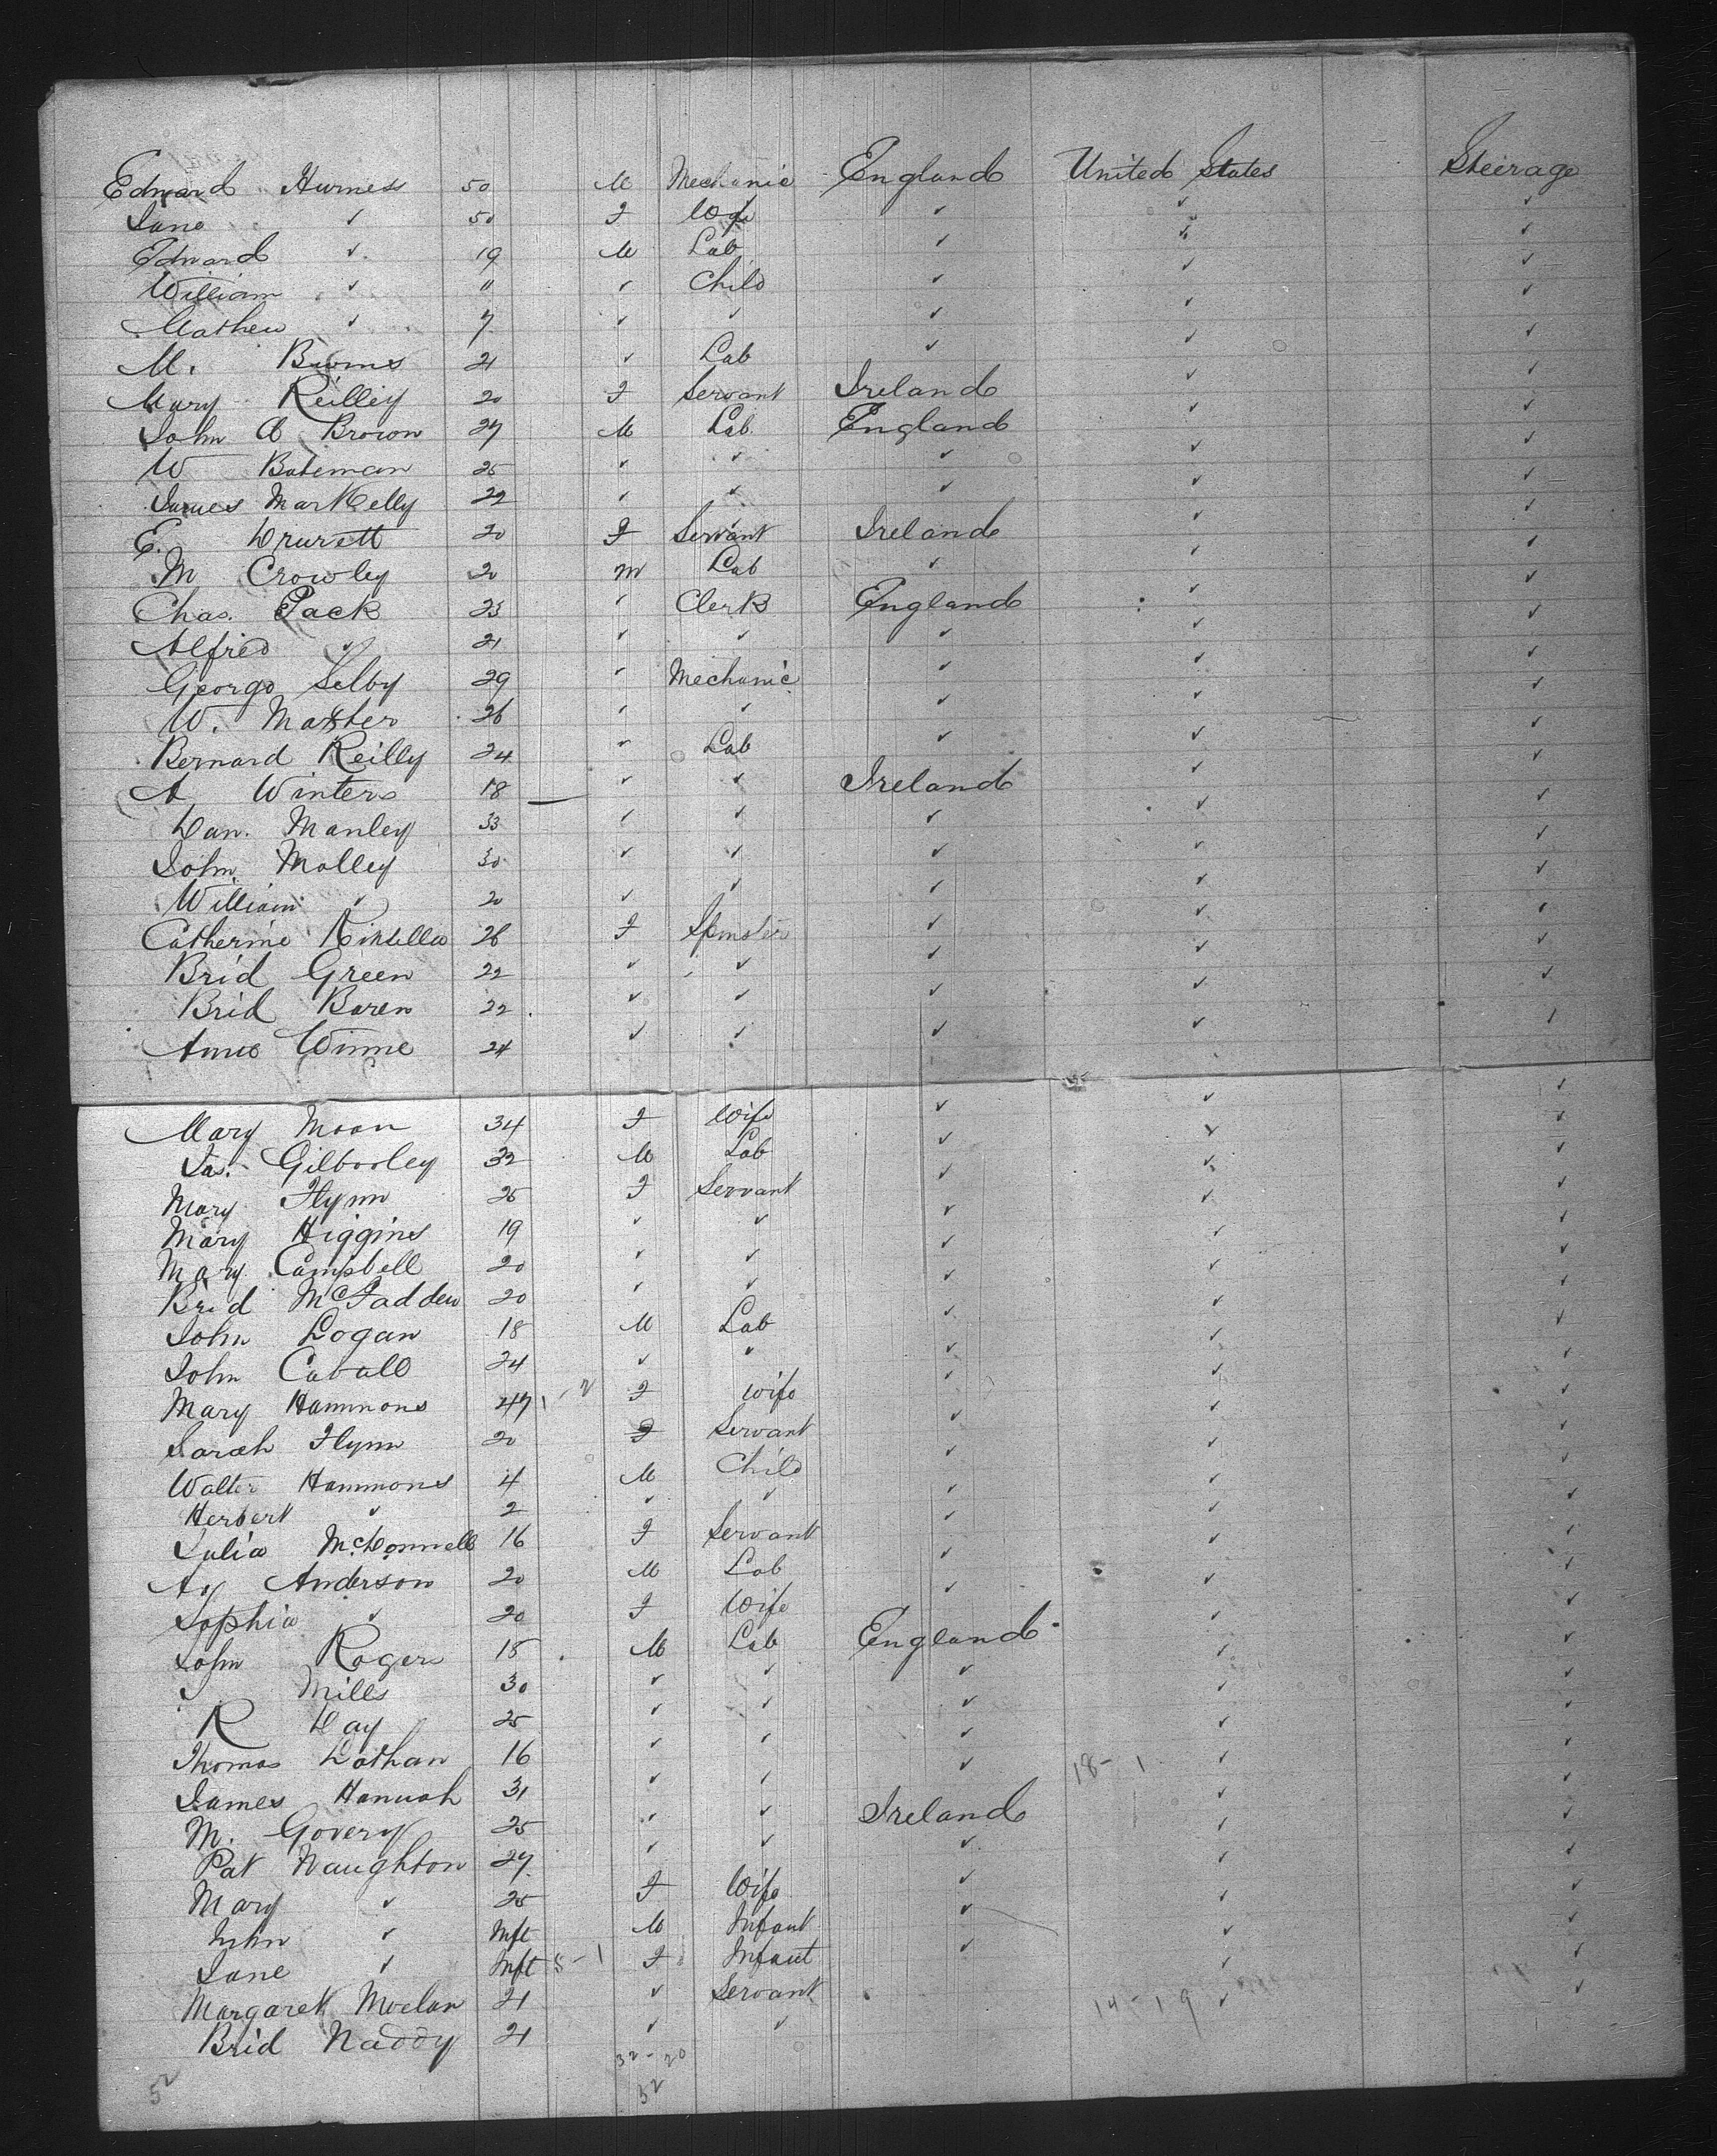 Edward Hurness 50 M Mechanic England United States Steerage
Jane ✓ 50 F Wife ✓ ✓ ✓
Edward ✓ 19 M Lab ✓ ✓ ✓
William ✓ 11 ✓ Child ✓ ✓ ✓
Mathew ✓ 7 ✓ ✓ ✓ ✓ ✓
M. Burns 21 ✓ Lab ✓ ✓ ✓
Mary Reilley 20 F Servant Ireland ✓ ✓
John A Brown 27 M Lab England ✓ ✓
W Bateman 25 ✓ ✓ ✓ ✓ ✓
James MarKelly 22 ✓ ✓ ✓ ✓ ✓
E. Drurett 20 F Servant Ireland ✓ ✓
M Crowley 20 M Lab ✓ ✓ ✓
Chas. Pack 23 ✓ Clerk England ✓ ✓
Alfred ✓ 21 ✓ ✓ ✓ ✓ ✓
George Selby 29 ✓ Mechanic ✓ ✓ ✓
W. 26 ✓ ✓ ✓ ✓ ✓
Bernard Reilly 24 ✓ Lab ✓ ✓ ✓
A Winters 18 ✓ ✓ Ireland ✓ ✓
Dan. Manley 33 ✓ ✓ ✓ ✓ ✓
John Molley 30 ✓ ✓ ✓ ✓ ✓
William ✓ 20 ✓ ✓ ✓ ✓ ✓
Catherine Kinsella 26 F Spinster ✓ ✓ ✓
Brid Green 22 ✓ ✓ ✓ ✓ ✓
Brid Baren 22 ✓ ✓ ✓ ✓ ✓
Annie Winne 24 ✓ ✓ ✓ ✓ ✓
Mary Moan 34 F Wife ✓ ✓ ✓
Jas. Gilbooley 32 M Lab ✓ ✓ ✓
Mary Flynn 25 F Servant ✓ ✓ ✓
Mary Higgins 19 ✓ ✓ ✓ ✓ ✓
Mary Campbell 20 ✓ ✓ ✓ ✓ ✓
Brid McFadden 20 ✓ ✓ ✓ ✓ ✓
John Logan 18 M Lab ✓ ✓ ✓
John 24 ✓ ✓ ✓ ✓ ✓
Mary Hammons 47 F Wife ✓ ✓ ✓
Sarah Flynn 20 F Servant ✓ ✓ ✓
Walter Hammons 4 M Child ✓ ✓ ✓
Herbert ✓ 2 ✓ ✓ ✓ ✓ ✓
Julia McDonnell 16 F Servant ✓ ✓ ✓
Anderson 20 M Lab ✓ ✓ ✓
Sophia ✓ 20 F Wife ✓ ✓ ✓
John Rogers 18 M Lab England ✓ ✓
Mills 30 ✓ ✓ ✓ ✓ ✓
R Day 25 ✓ ✓ ✓ ✓ ✓
Thomas Dothan 16 ✓ ✓ ✓ ✓ ✓
James Hannah 31 ✓ ✓ ✓ 18-1 ✓ ✓
M. Govery 25 ✓ ✓ Ireland ✓ ✓
Pat Naughton 27 ✓ ✓ ✓ ✓ ✓
Mary ✓ 25 F Wife ✓ ✓ ✓
John ✓ Inft M Infant ✓ ✓ ✓
Jane ✓ Inft 5-1 F Infant ✓ ✓ ✓
Margaret Moelan 21 ✓ Servant 14-19 ✓ ✓
Brid Naddy 21 ✓ ✓
32-20
52 52